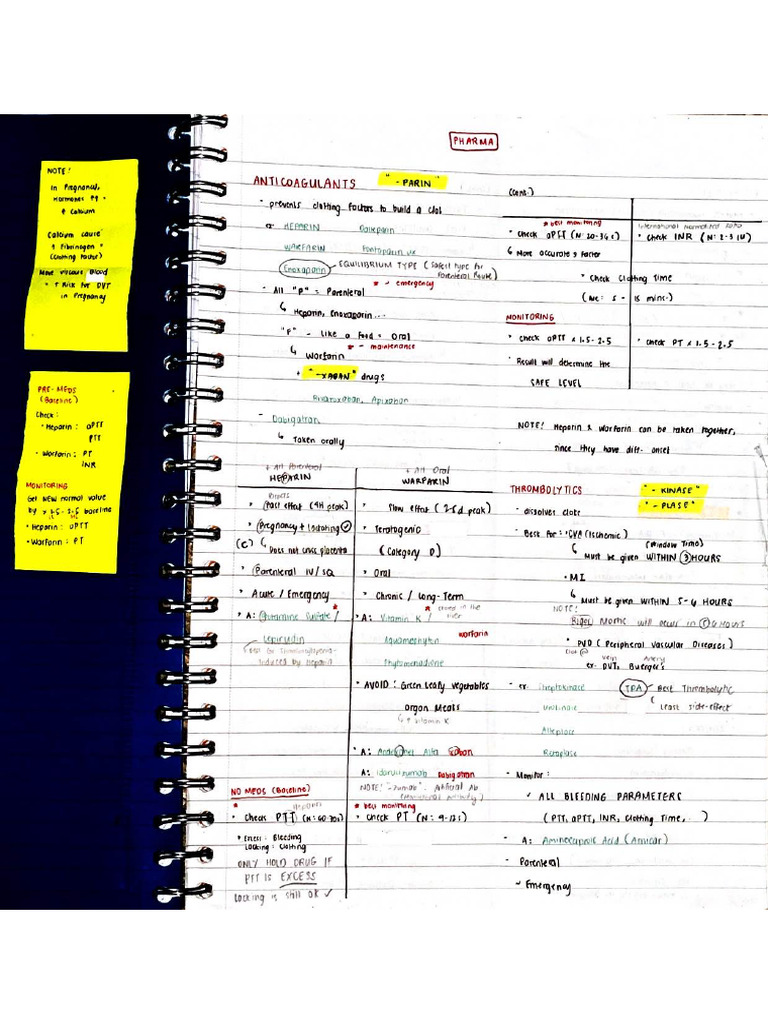 PHARMA
NOTE:
In Pregnancy,
Hormones
Calcium
Calcium cause
↑ Fibrinogen
(Clotting Factor)
More viscous Blood
• ↑ Risk for DVT
in Pregnancy
PRE-MEDS
(Baseline)
Check:
• Heparin: aPTT
PTT
• Warfarin: PT
INR
MONITORING
Get NEW normal value
by x 1.5-2.5 baseline
• Heparin: aPTT
• Warfarin: PT
ANTICOAGULANTS "-PARIN"
- prevents clotting factors to build a clot
ex HEPARIN Dalteparin
WARFARIN Fontaparin ux
Enoxaparin EQUILIBRIUM TYPE (Safest type for
Parenteral Route)
* - emergency
- All "P" = Parenteral
↳ Heparin, Enoxaparin...
"F" - Like a Food = Oral
* - maintenance
↳ Warfarin
+ "-XABAN" drugs
Rivaroxaban, Apixaban
- Dabigatran
↳ Taken orally
+ All Parenteral
HEPARIN
• Fast effect (4H peak)
• Pregnancy + Lactating ✓
(C) ↳ Does not cross placenta
• Parenteral IV/SQ
• Acute / Emergency
• A: Protamine Sulfate / *
Lepirudin
Induced by Heparin
NO MEDS (Baseline)
*
Heparin
• Check PTT (N: 60-70s)
• Excess: Bleeding
Lacking: Clotting
ONLY HOLD DRUG IF
PTT IS EXCESS
Lacking is still OK ✓
+ All Oral
WARFARIN
• Slow effect (2-5d. peak)
• Teratogenic
(Category D)
• Oral
• Chronic / Long-Term
* stored in the
liver
• A: Vitamin K /
Aquamephyton Warfarin
Phytomenadione
• AVOID: Green leafy vegetables
Organ Meats
↳ ↑ Vitamin K
• A: Andexanet Alfa Xaban
A: Idarucizumab Dabigatran
NOTE! "-zumab": Artificial Ab
(Monoclonal Antibody)
* best monitoring
• Check PT (N: 9-12s)
(cont.)
* best monitoring
• Check aPTT (N: 20-36s)
↳ More accurate & faster
International Normalized Ratio
• Check INR (N: 2-3 IU)
• Check Clotting Time
(Ave: 5 - 15 mins.)
MONITORING
• Check aPTT x 1.5-2.5
• Check PT x 1.5-2.5
• Result will determine the
SAFE LEVEL
NOTE! Heparin & Warfarin can be taken together,
since they have diff. onset
THROMBOLYTICS "-KINASE"
"-PLASE"
- dissolves clots
- Best for: • CVA (Ischemic)
(Window Time)
↳ Must be given WITHIN 3 HOURS
• MI
↳ Must be given WITHIN 5-6 HOURS
NOTE:
Rigor Mortis will occur in 6 HOURS
• PVD (Peripheral Vascular Diseases)
Clot @ Vein Artery
ex. DVT, Buerger's
- ex. Streptokinase TPA Best Thrombolytic
Urokinase Least side-effect
Alteplase
Reteplase
- Monitor:
✓ ALL BLEEDING PARAMETERS
(PTT, aPTT, INR, Clotting Time, ..)
- A: Aminocaproic Acid (Amicar)
- Parenteral
- Emergency